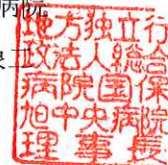 地方独立行
政法人総合
病院国保
旭中央病院
理事長